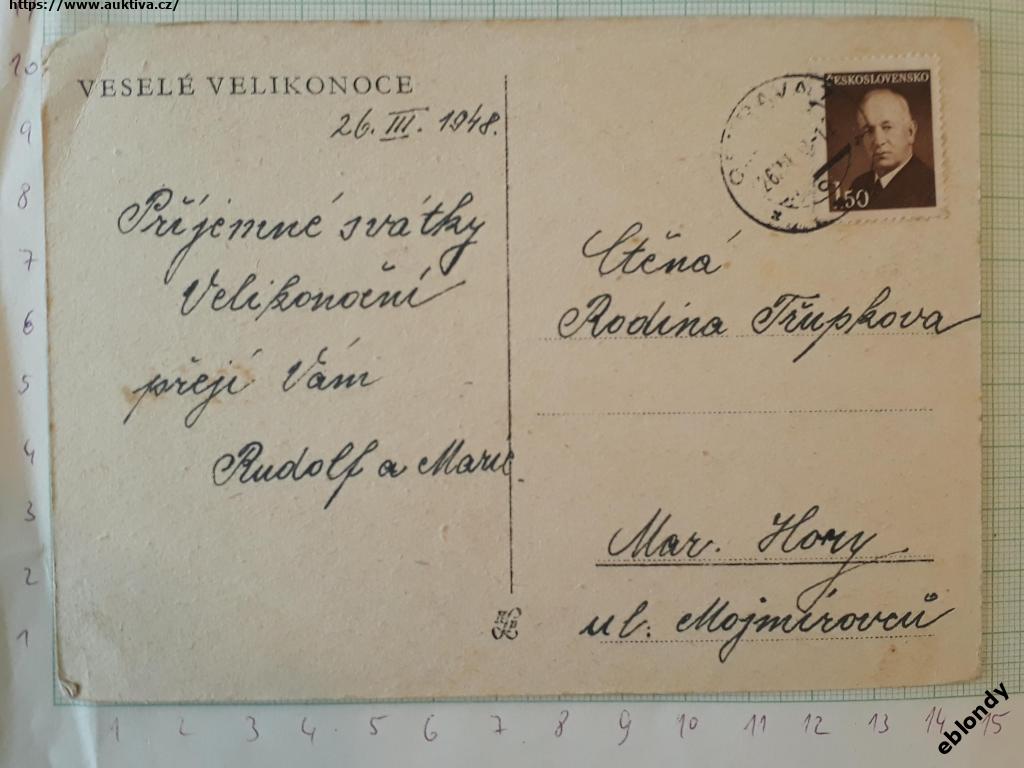 https://www.auktiva.cz/
VESELÉ VELIKONOCE
26. III. 1948.
Příjemné svátky
Velikonoční
přejí Vám
Rudolf a Marie
ČESKOSLOVENSKO
1.50
Ctěná
Rodina Třupkova
Mar. Hory
ul. Mojmírovců
10
9
8
7
6
5
4
3
2
1
1 2 3 4 5 6 7 8 9 10 11 12 13 14 15
eblondy